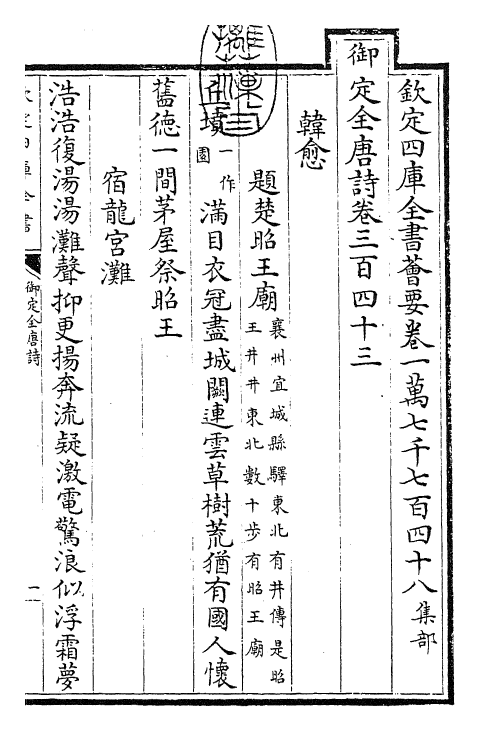 欽定四庫全書薈要卷一萬七千七百四十八集部
御定全唐詩卷三百四十三
韓愈
題楚昭王廟襄州宜城縣驛東北有井傳是昭
王井井東北數十步有昭王廟
丘墳一作園滿目衣冠盡城闕連雲草樹荒猶有國人懷
舊德一間茅屋祭昭王
宿龍宮灘
浩浩復湯湯灘聲抑更揚奔流疑激電驚浪似浮霜夢
御定全唐詩
一